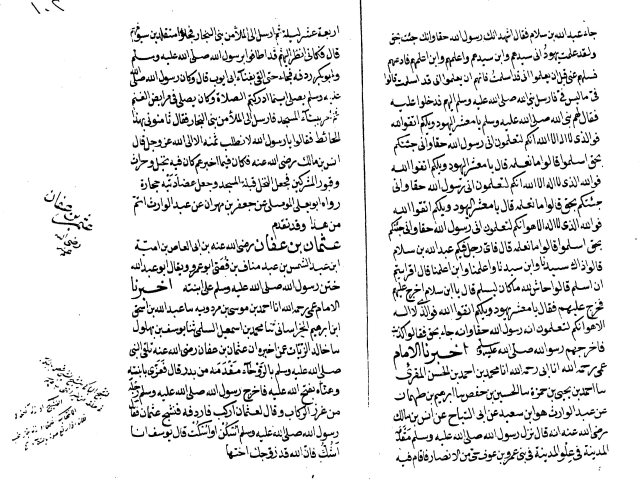 جاء عبد الله بن سلام فقال اشهد انك رسول الله حقا وانك جئت بحق
ولقد علمت يهود اني سيدهم وابن سيدهم واعلمهم وابن اعلمهم فادعهم
فسلهم عني قبل ان يعلموا اني قد اسلمت فانهم ان يعلموا اني قد اسلمت قالوا
في ما ليس في فارسل نبي الله صلى الله عليه وسلم اليهم فدخلوا عليه
فقال لهم نبي الله صلى الله عليه وسلم يا معشر اليهود ويلكم اتقوا الله
فوالذي لا اله الا الله انكم لتعلمون اني رسول الله حقا واني جئتكم
بحق اسلموا قالوا ما نعلمه قال يا معشر اليهود ويلكم اتقوا الله
فوالله الذي لا اله الا الله انكم لتعلمون اني رسول الله حقا واني
جئتكم بحق قالوا ما نعلمه قال يا معشر اليهود ويلكم اتقوا الله
فوالله الذي لا اله الا الله انكم لتعلمون اني رسول الله حقا واني جئتكم
بحق اسلموا قالوا ما نعلمه قال فاي رجل فيكم عبد الله بن سلام
قالوا ذاك سيدنا وابن سيدنا واعلمنا وابن اعلمنا قال افرايتم
ان اسلم قالوا حاش لله ما كان ليسلم قال يا ابن سلام اخرج عليهم
فخرج عليهم فقال يا معشر اليهود ويلكم اتقوا الله فوالذي لا اله
الا هو انكم لتعلمون انه رسول الله حقا وانه جاء بحق فقالوا كذبت
فاخرجهم رسول الله صلى الله عليه وسلم اخبرنا الامام
عمي رحمه الله انا ابي رحمه الله انا محمد بن احمد بن الحسن المقرئ
سا احمد بن يحيى بن حمزة سا الحسين بن حفص سا ابراهيم بن طهمان
عن عبد الوارث هو ابن سعيد عن ابي التياح عن انس بن مالك
رضي الله عنه انه قال نزل رسول الله صلى الله عليه وسلم مقدمه
المدينة في علو المدينة في بني عمرو بن عوف من الانصار فاقام فيه
اربعة عشر ليلة ثم ارسل الى الملأ من بني النجار فجاؤا متقلدين سيوفهم
قال فكاني انظر اليهم قد اطافوا برسول الله صلى الله عليه وسلم
وابو بكر ردفه فجاء حتى القى بفناء ابي ايوب قال وكان رسول الله صلى الله
عليه وسلم يصلي اينما ادركتهم الصلاة وكان يصلي في مرابض الغنم
المسجد فارسل الى الملأ من بني النجار فقال ثامنوني بهذا
الحائط فقالوا يا رسول الله لا نطلب ثمنه الا الى الله عز وجل قال
انس بن مالك رضي الله عنه فكان فيما اخبركم كان فيه نخيل وحرث
وقبور المشركين فجعل النخل قبلة المسجد وجعل عضادتيه حجارة
رواه ابو يعلى الموصلي عن جعفر بن مهران عن عبد الوارث اتم
من هذا وقد تقدم
عثمان بن عفان رضي الله عنه بن ابي العاص بن امية
ابن عبد الشمس بن عبد مناف بن قصي ابو عمرو ويقال ابو عبد الله
ختن رسول الله صلى الله عليه وسلم على ابنته اخبرنا
الامام عمي رحمه الله انا احمد بن موسى بن مردويه سا عبد الله بن اسحق
ابن ابراهيم الخراساني ثنا محمد بن اسمعيل السلمي ثنا يوسف بن بهلول
سا خالد الزيات عن اخبره ان عثمان بن عفان رضي الله عنه تلقى النبي
صلى الله عليه وسلم مقدمه من بدر قال
وسلم
من غرز الركاب وقال لعثمان اركب فاردفه عثمان
رسول الله صلى الله عليه وسلم قال يوسف انا
فان الله قد زوجك اختها
عثمن بن عفان
رضي الله
عنه